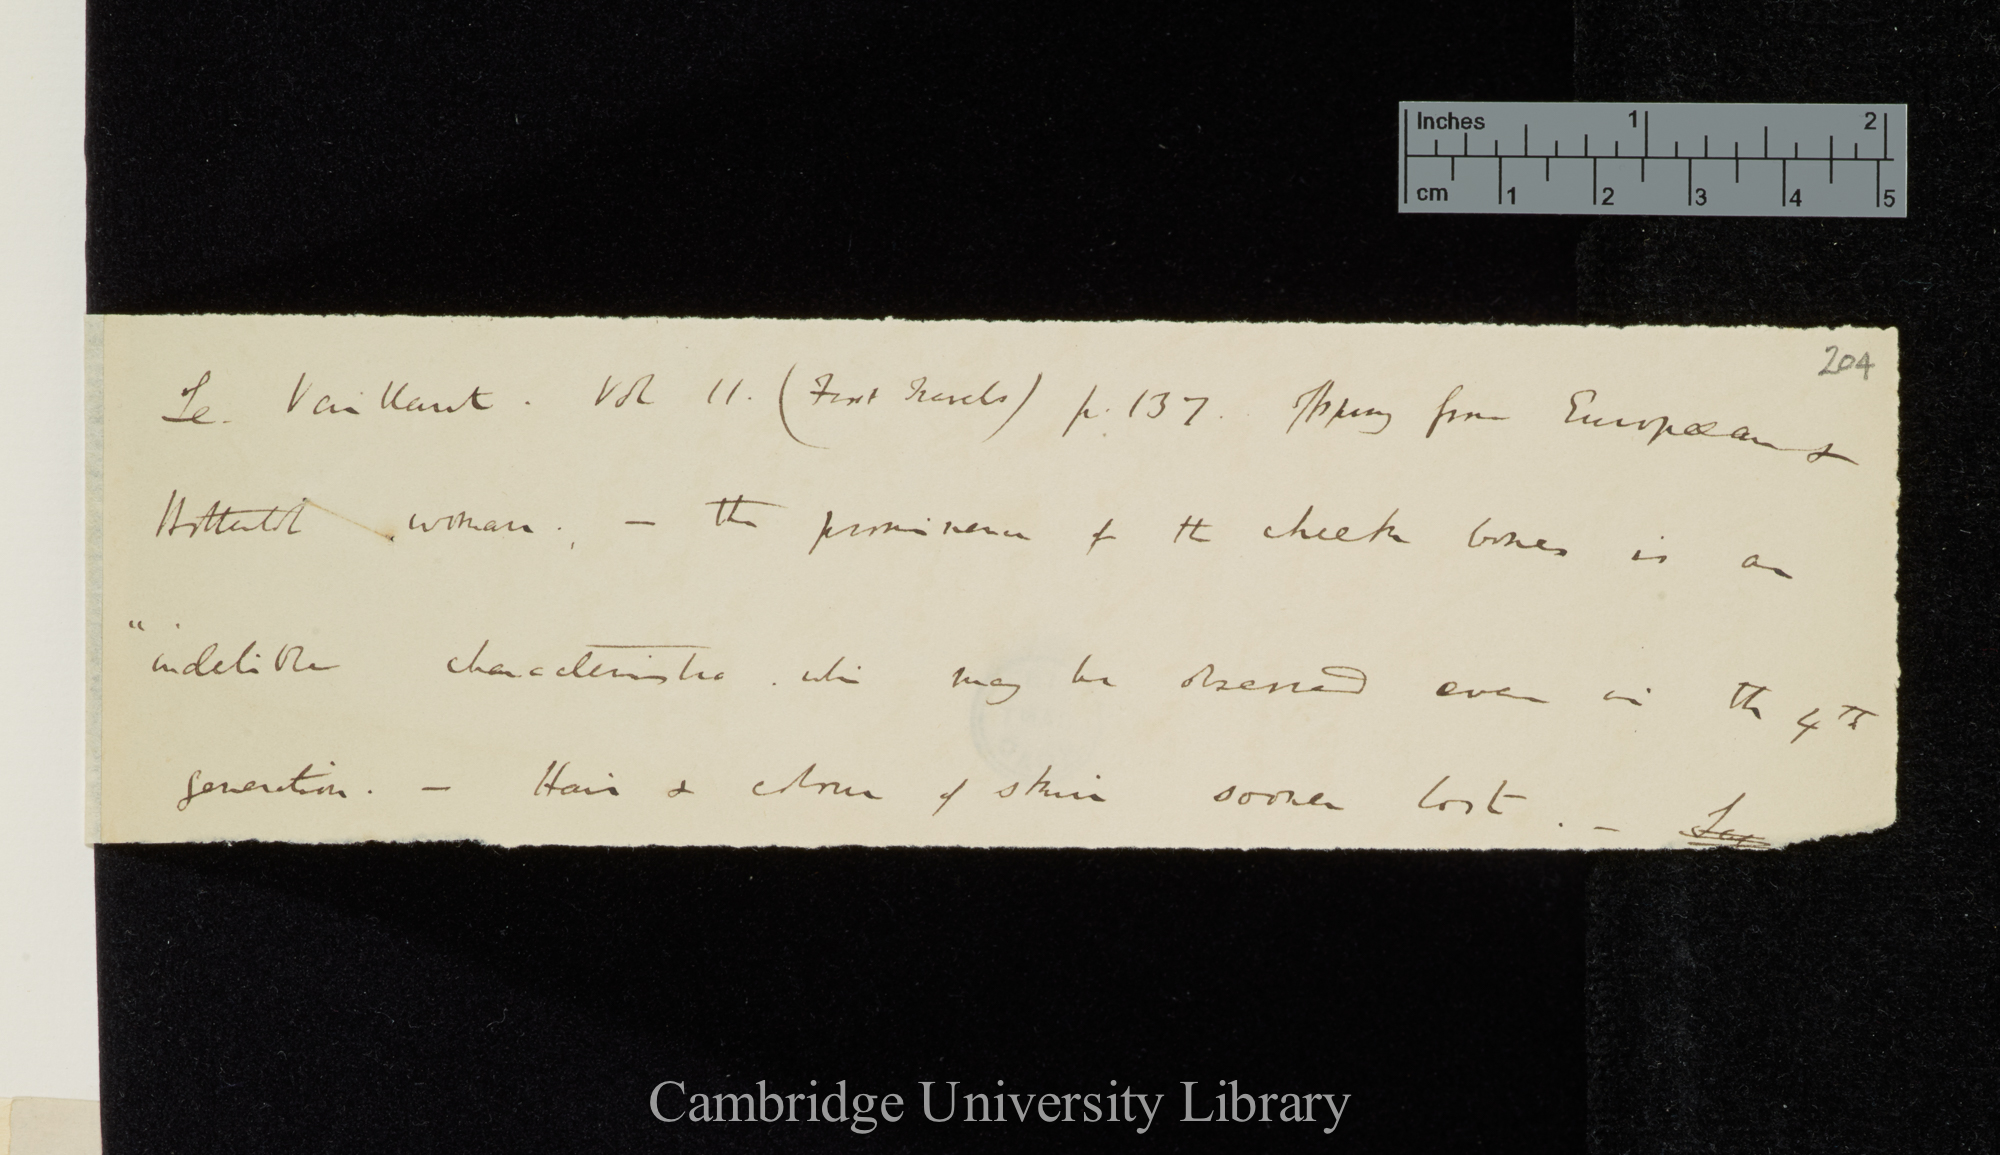 204
Le. Vaillant. Vol 11. (First Travels) p. 137. Offspring from European &
Hottentot woman. — the prominence of the cheek bones is an
"indelible characteristic which may be observed even in the 4th
generation. — Hair & colour of skin sooner lost. —
Inches 1 2
cm 1 2 3 4 5
Cambridge University Library